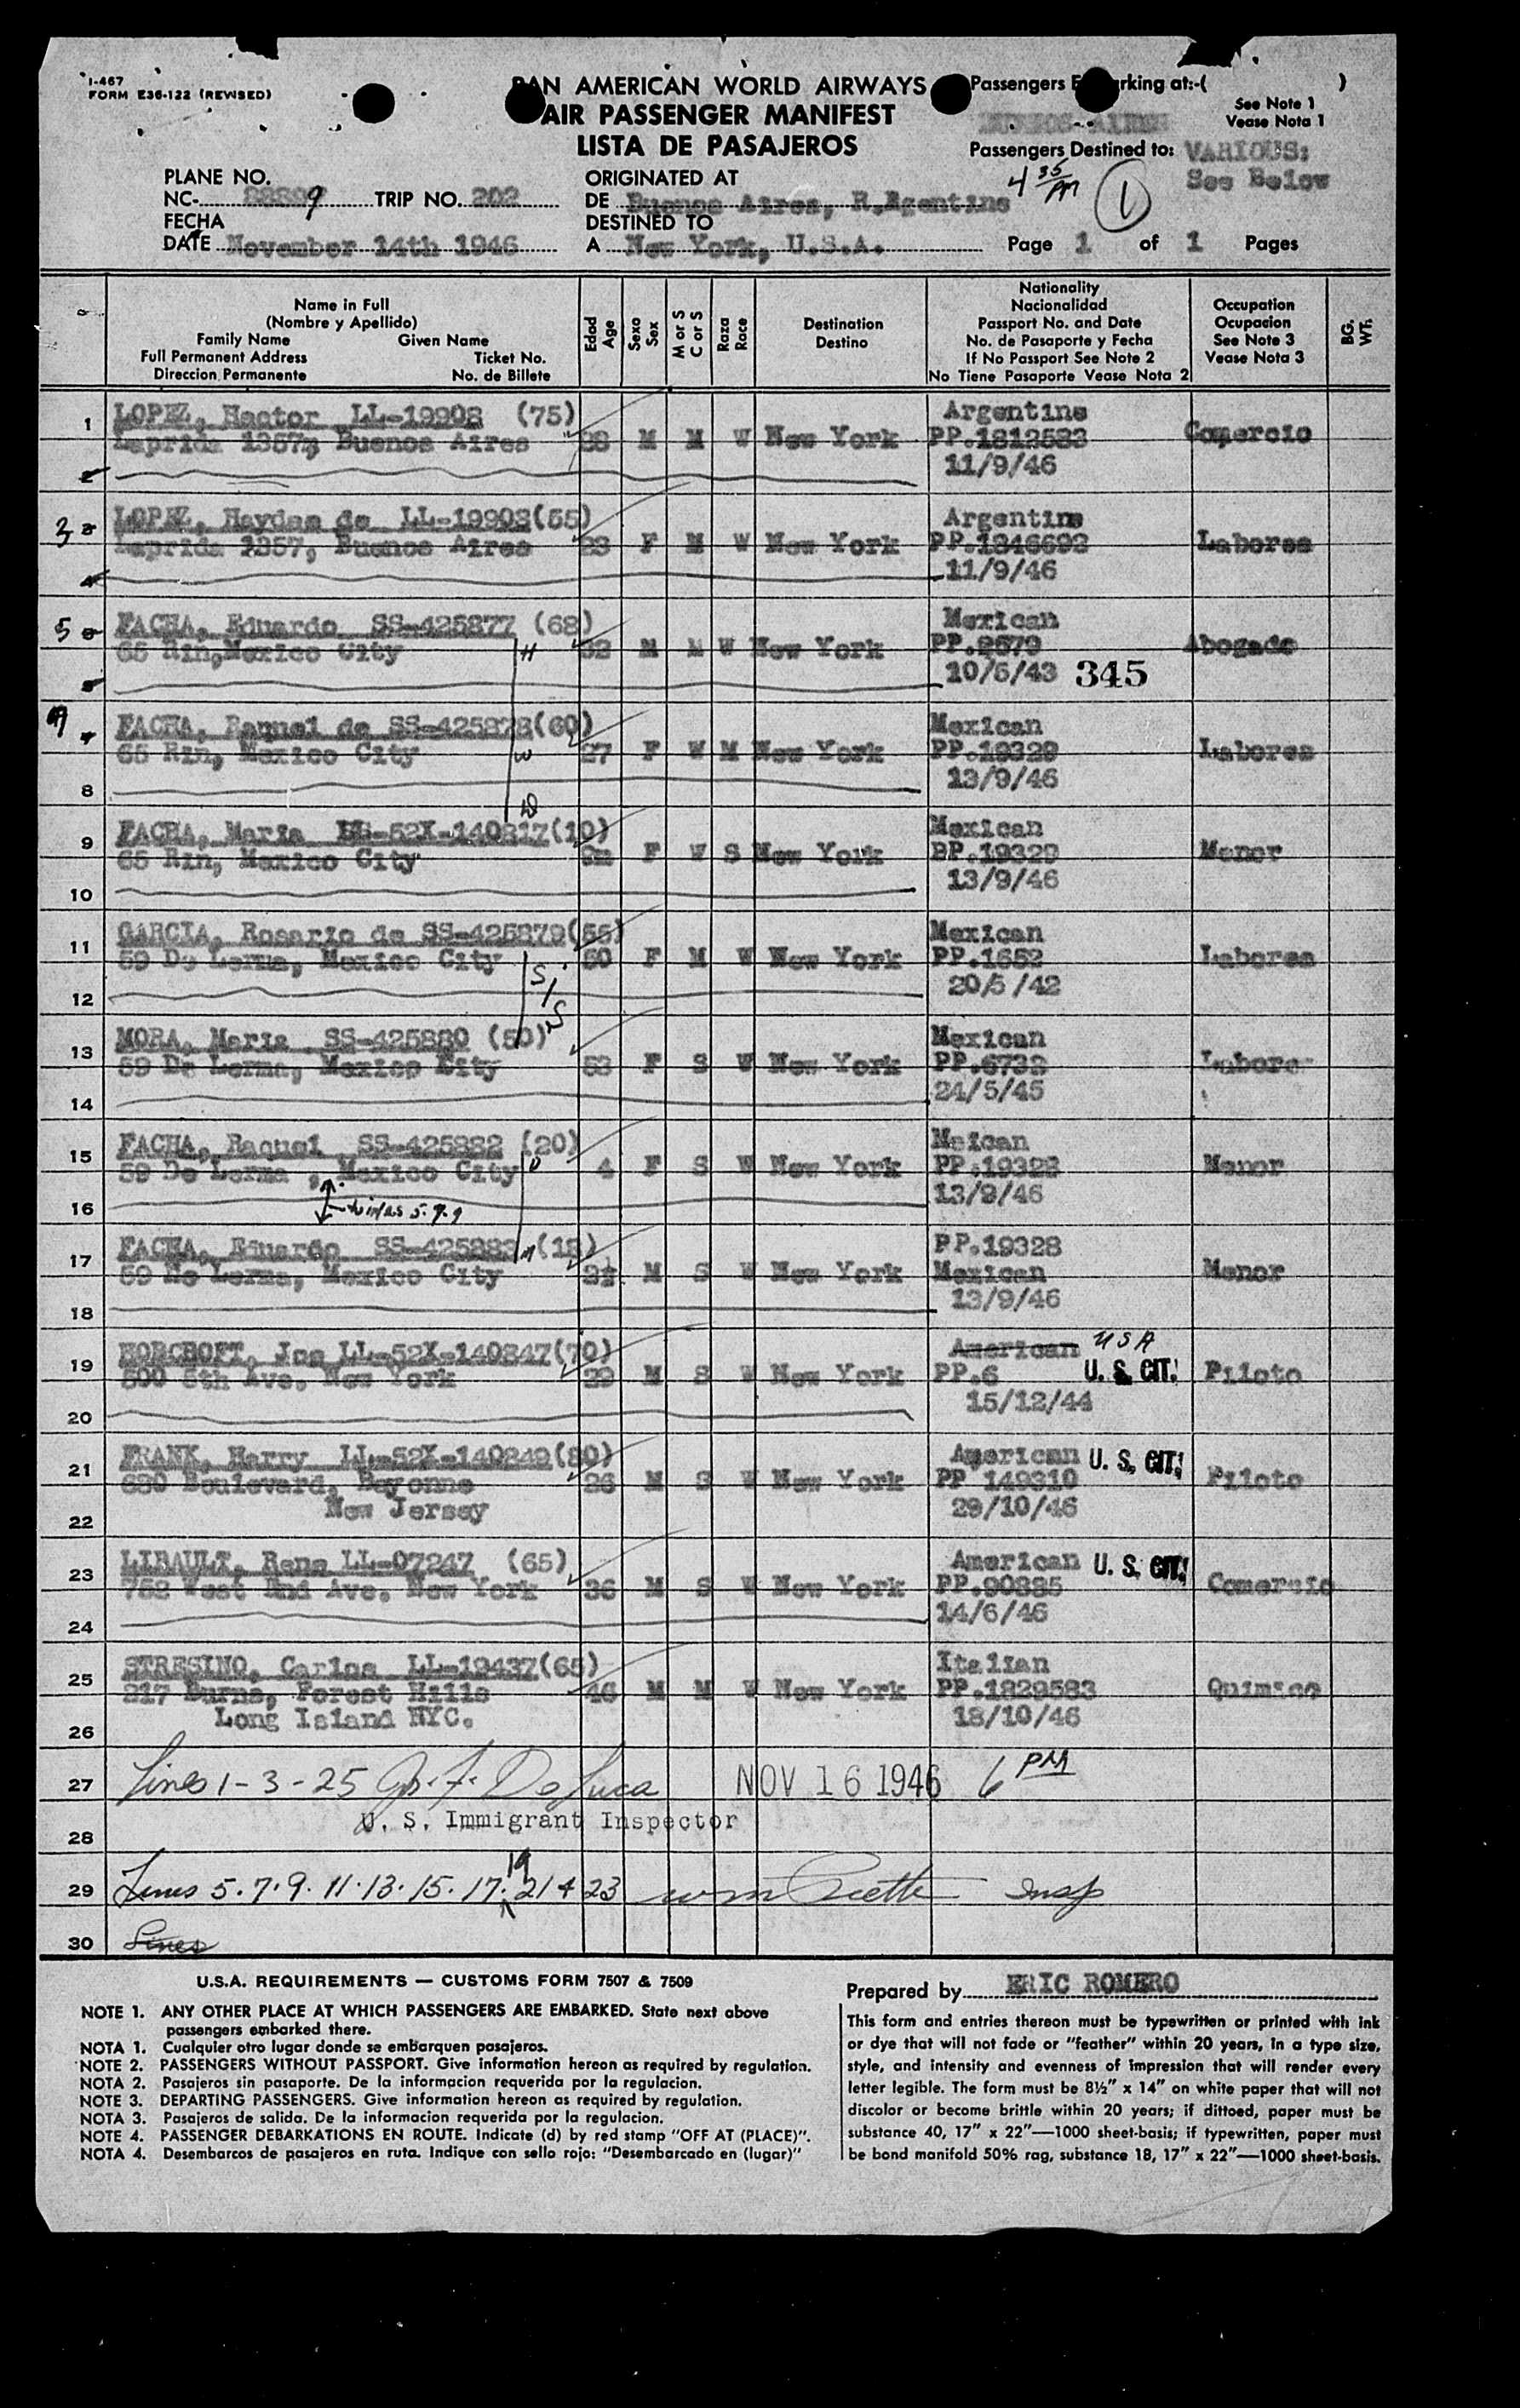 I-467
FORM E36-122 (REVISED)
PAN AMERICAN WORLD AIRWAYS
AIR PASSENGER MANIFEST
LISTA DE PASAJEROS
Passengers Embarking at:-( )
See Note 1
Vease Nota 1
BUENOS AIRES
Passengers Destined to: VARIOUS:
See Below
4 35 PM
1
PLANE NO.
NC- 88899 TRIP NO. 202
FECHA
DATE November 14th 1946
ORIGINATED AT
DE Buenos Aires, R.Agentine
DESTINED TO
A New York, U.S.A.
Page 1 of 1 Pages
Name in Full
(Nombre y Apellido)
Family Name Given Name
Full Permanent Address Ticket No.
Direccion Permanente No. de Billete
Edad Age
Sexo Sex
M or S C or S
Raza Race
Destination
Destino
Nationality
Nacionalidad
Passport No. and Date
No. de Pasaporte y Fecha
If No Passport See Note 2
No Tiene Pasaporte Vease Nota 2
Occupation
Ocupacion
See Note 3
Vease Nota 3
BG. WT.
1 LOPEZ, Hector LL-19908 (75) Argentine
Laprida 1357, Buenos Aires 28 M M W New York PP.1812583 Comercio
2 11/9/46
3 LOPEZ, Haydee de LL-19908(55) Argentine
Laprida 1357, Buenos Aires 23 F M W New York PP.1846693 Labores
4 11/9/46
5 FACHA, Eduardo SS-425877 (68) Mexican
65 Rin,Mexico City H 32 M M W New York PP.2679 Abogado
10/5/43 345
7 FACHA, Raquel de SS-425878(60) Mexican
65 Rin, Mexico City W 27 F W M New York PP.19329 Labores
8 13/9/46
9 FACHA, Maria 52X-140817(10) Mexican
65 Rin, Mexico City D F W S New York PP.19329 Menor
10 13/9/46
11 GARCIA, Rosario de SS-425879(55) Mexican
59 De Lerma, Mexico City 50 F M W New York PP.1652 Labores
12 S/S 20/5 /42
13 MORA, Maria SS-425880 (50) Mexican
59 De Lerma, Mexico City 53 F S W New York PP.6732 Labores
14 24/5/45
15 FACHA, Raquel SS-425882 (20) Meican
59 De Lerma , Mexico City D 4 F S W New York PP.19328 Menor
16 13/9/46
17 FACHA, Eduardo SS-425883 (18) PP.19328
59 De Lerma, Mexico City M S W New York Mexican Menor
18 13/9/46
19 HORCROFT, Jos LL-52X-140847(70) American USA
500 5th Ave. New York 29 M S W New York PP.6 U. S. CIT. Piloto
20 15/12/44
21 FRANK, Harry LL-52X-140849(80) American U. S. CIT.
680 Boulevard, Bayonne 26 M S W New York PP 149310 Piloto
22 New Jersey 29/10/46
23 LIBAULT, Rene LL-07247 (65) American U. S. CIT.
752 West End Ave. New York 36 M S W New York PP.90885 Comercio
24 14/6/46
25 STRESINO, Carlos LL-19437(65) Italian
217 Burns, Forest Hills 46 M M W New York PP.1829583 Quimico
26 Long Island NYC. 18/10/46
27 Lines 1-3-25 De Luca NOV 16 1946 6 PM
U. S. Immigrant Inspector
28
29 Lines 5.7.9.11.13.15.17.19 21 & 23 Insp
30 Lines
U.S.A. REQUIREMENTS — CUSTOMS FORM 7507 & 7509
NOTE 1. ANY OTHER PLACE AT WHICH PASSENGERS ARE EMBARKED. State next above
passengers embarked there.
NOTA 1. Cualquier otro lugar donde se embarquen pasajeros.
NOTE 2. PASSENGERS WITHOUT PASSPORT. Give information hereon as required by regulation.
NOTA 2. Pasajeros sin pasaporte. De la informacion requerida por la regulacion.
NOTE 3. DEPARTING PASSENGERS. Give information hereon as required by regulation.
NOTA 3. Pasajeros de salida. De la informacion requerida por la regulacion.
NOTE 4. PASSENGER DEBARKATIONS EN ROUTE. Indicate (d) by red stamp "OFF AT (PLACE)".
NOTA 4. Desembarcos de pasajeros en ruta. Indique con sello rojo: "Desembarcado en (lugar)"
Prepared by ERIC ROMERO
This form and entries thereon must be typewritten or printed with ink
or dye that will not fade or "feather" within 20 years, in a type size,
style, and intensity and evenness of impression that will render every
letter legible. The form must be 8½" x 14" on white paper that will not
discolor or become brittle within 20 years; if dittoed, paper must be
substance 40, 17" x 22"—1000 sheet-basis; if typewritten, paper must
be bond manifold 50% rag, substance 18, 17" x 22"—1000 sheet-basis.